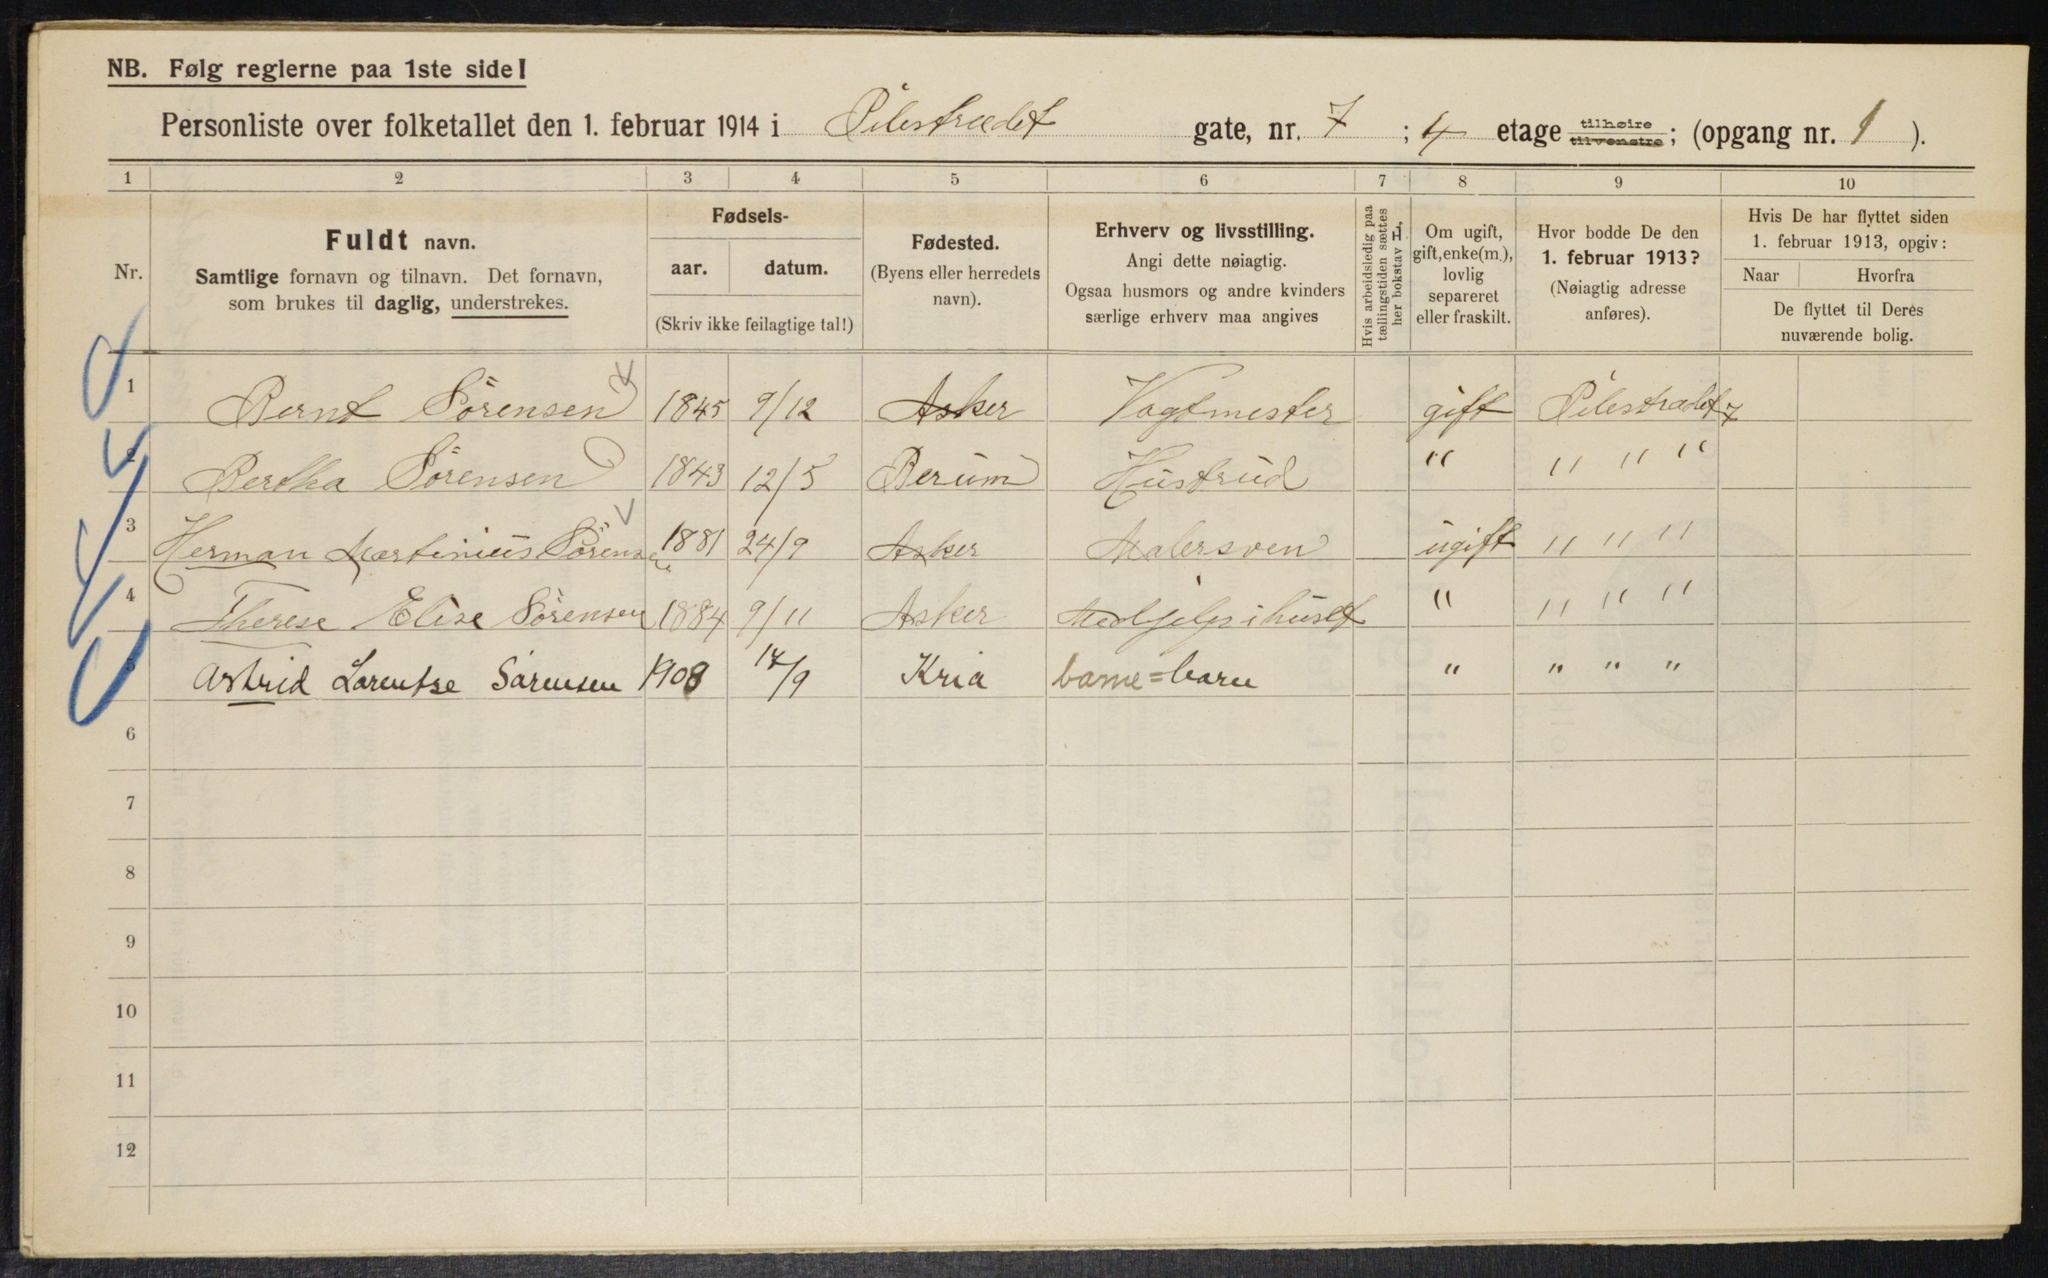 NB. Følg reglerne paa 1ste side!
Personliste over folketallet den 1. februar 1914 i Pilestrædet gate, nr. 7 ; 4 etage tilhøire tilvenstre ; (opgang nr. 1 ).
1 2 3 4 5 6 7 8 9 10
Nr.
Fuldt navn.
Samtlige fornavn og tilnavn. Det fornavn,
som brukes til daglig, understrekes.
Fødsels-
aar. datum.
(Skriv ikke feilagtige tal!)
Fødested.
(Byens eller herredets
navn).
Erhverv og livsstilling.
Angi dette nøiagtig.
Ogsaa husmors og andre kvinders
særlige erhverv maa angives
Hvis arbeidsledig paa
tællingstiden sættes
her bokstav H.
Om ugift,
gift, enke(m.),
lovlig
separeret
eller fraskilt.
Hvor bodde De den
1. februar 1913?
(Nøiagtig adresse
anføres).
Hvis De har flyttet siden
1. februar 1913, opgiv:
Naar Hvorfra
De flyttet til Deres
nuværende bolig.
1 Bernt Sörensen 1845 9/12 Asker Vogtmester gift Pilestrædet 7
2 Bertha Sörensen 1843 12/5 Berüm Hüstrüd " " " "
3 Herman Martiniüs Sörensen 1881 24/9 Asker Malersven ügift " " "
4 Therese Elise Sörensen 1884 9/11 Asker Medhjelp i hüset " " " "
5 Astrid Lorentse Sørensen 1908 14/9 Kria barne=barn " " " "
6
7
8
9
10
11
12